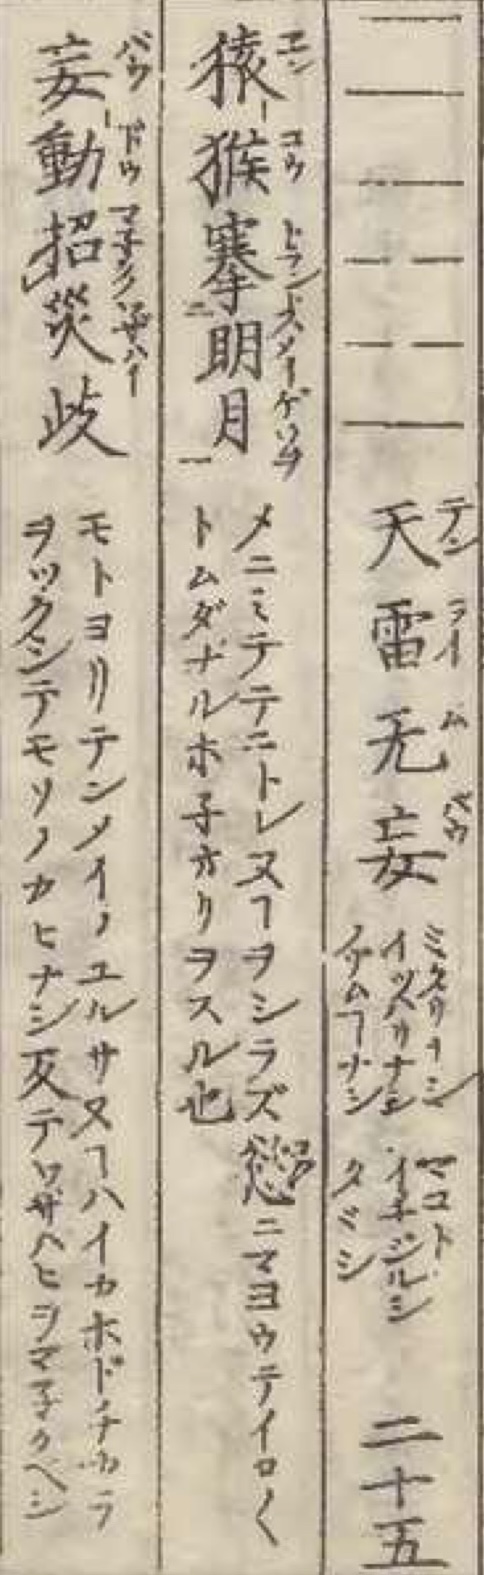 天雷无妄
テン ライ ム バウ
イツハリナシ
マコト
イチジルシ
タヾシ
二十五
猿猴搴明月
エン コウ
メニミテテニトレヌヿヲシラズ慾ニマヨウテイロ〱
トムダナルホ子オリヲスル也
妄動招災歧
バウ ドウ マ子ク
モトヨリテンメイノユルサヌヿハイカホドチカラ
ヲツクシテモソノカヒナシ反テワザハヒヲマ子クベシ